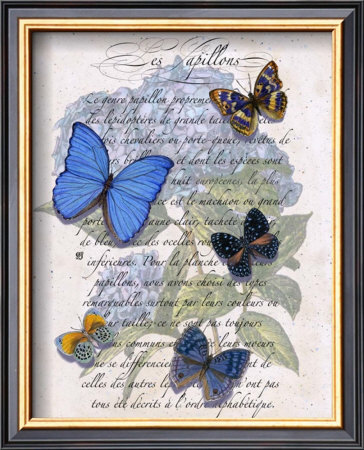 Les Papillons
Le genre papillon proprement
des lépidoptères de grande taille
ois chevaliers ou porte-queue, revêtus de
brill
s et dont les espèces sont
nuit européenes, la plus
st le machaon ou grand
aune clair, tacheté
de bleu ec des ocelles rou
inférieures. Pour la planche
papillons, nous avons choisi des types
remarquables surtout par leurs couleurs ou
par leurs
de
communs
et de
les différences
ent de
celles des autres
ont pas
tous été décrits à l'ordre alphabétique.